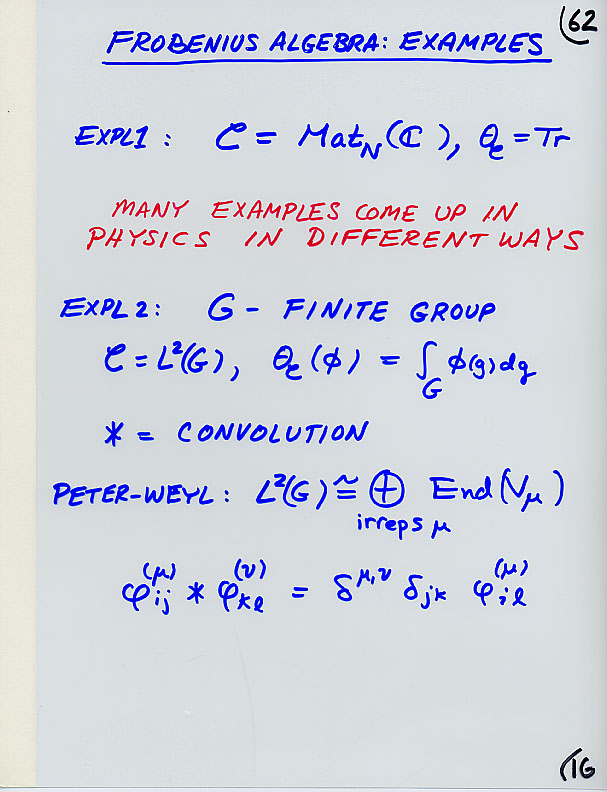 62
FROBENIUS ALGEBRA: EXAMPLES
EXPL1: 𝒞 = Mat_N(ℂ), θ_𝒞 = Tr
MANY EXAMPLES COME UP IN
PHYSICS IN DIFFERENT WAYS
EXPL 2: G - FINITE GROUP
𝒞 = L²(G), θ_𝒞(ϕ) = ∫_G ϕ(g)dg
* = CONVOLUTION
PETER-WEYL: L²(G) ≅ ⊕ End(V_μ)
irreps μ
φ_ij^(μ) * φ_kℓ^(ν) = δ^μ,ν δ_jk φ_iℓ^(μ)
TG